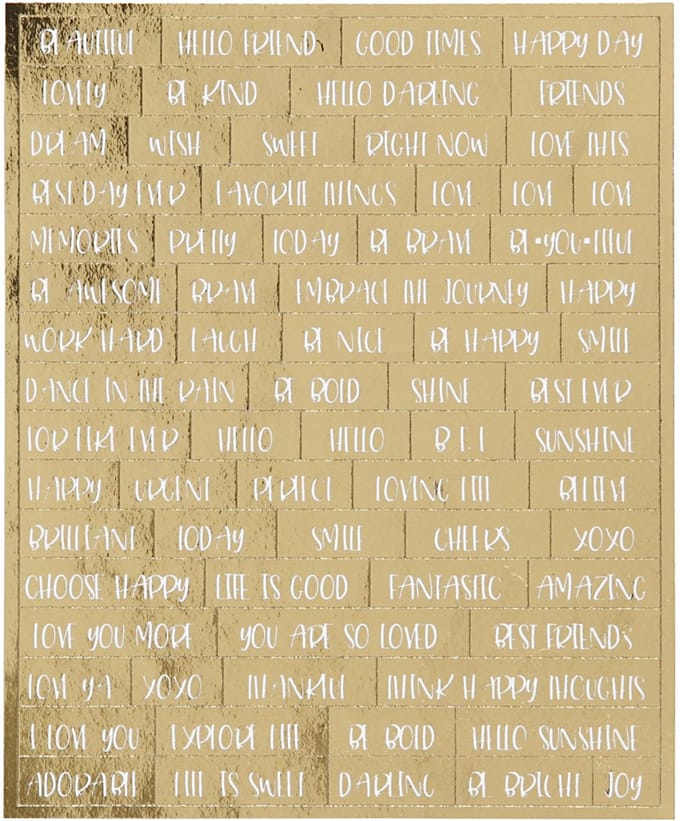 BEAUTIFUL HELLO FRIEND GOOD TIMES HAPPY DAY
LOVELY BE KIND HELLO DARLING FRIENDS
DREAM WISH SWEET RIGHT NOW LOVE THIS
BEST DAY EVER FAVORITE THINGS LOVE LOVE LOVE
MEMORIES PRETTY TODAY BE BRAVE BE•YOU•TIFUL
BE AWESOME BRAVE EMBRACE THE JOURNEY HAPPY
WORK HARD LAUGH BE NICE BE HAPPY SMILE
DANCE IN THE RAIN BE BOLD SHINE BEST EVER
FOR LIKE EVER HELLO HELLO B.F.F. SUNSHINE
HAPPY URGENT PERFECT LOVING LIFE BELIEVE
BRILLIANT TODAY SMILE CHEERS XOXO
CHOOSE HAPPY LIFE IS GOOD FANTASTIC AMAZING
LOVE YOU MORE YOU ARE SO LOVED BEST FRIENDS
LOVE YA XOXO THANKFUL THINK HAPPY THOUGHTS
I LOVE YOU EXPLORE LIFE BE BOLD HELLO SUNSHINE
ADORABLE LIFE IS SWEET DARLING BE BRIGHT JOY